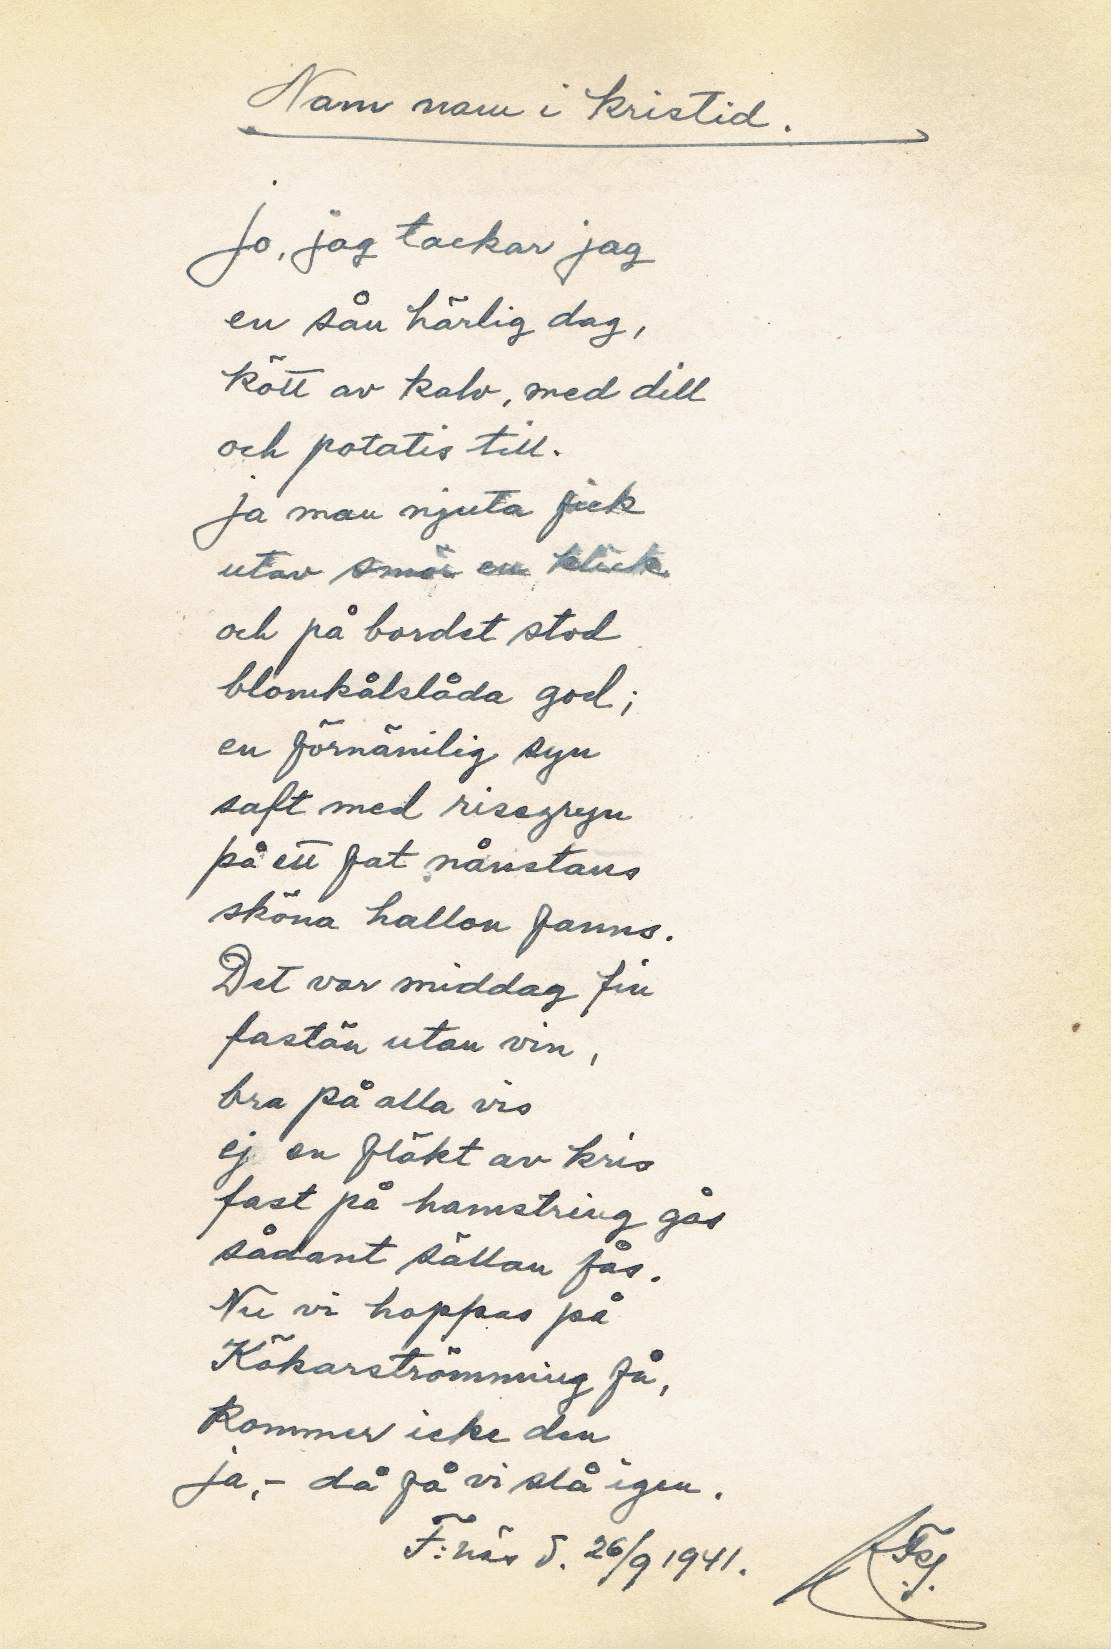 Nam nam i kristid.
Jo, jag tackar jag
en sån härlig dag,
kött av kalv, med dill
och potatis till.
ja man njuta fick
utav smör en klick
och på bordet stod
blomkålslåda god;
en förnämlig syn
saft med risegryn
på ett fat nånstans
sköna hallon fanns.
Det var middag fin
fastän utan vin,
bra på alla vis
ej en fläkt av kris
fast på hamstring gås
sådant sällan fås.
Nu vi hoppas på
Kökarströmming få,
kommer icke den
ja,- då få vi slå igen.
F:näs d. 26/9 1941.